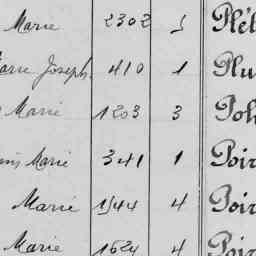 Marie 2302 5 Plé
Marie Joseph. 410 1 Plu
Marie 1203 3 Poh
Marie 341 1 Poir
Marie 1944 4 Poir
Marie 1624 4 Poir